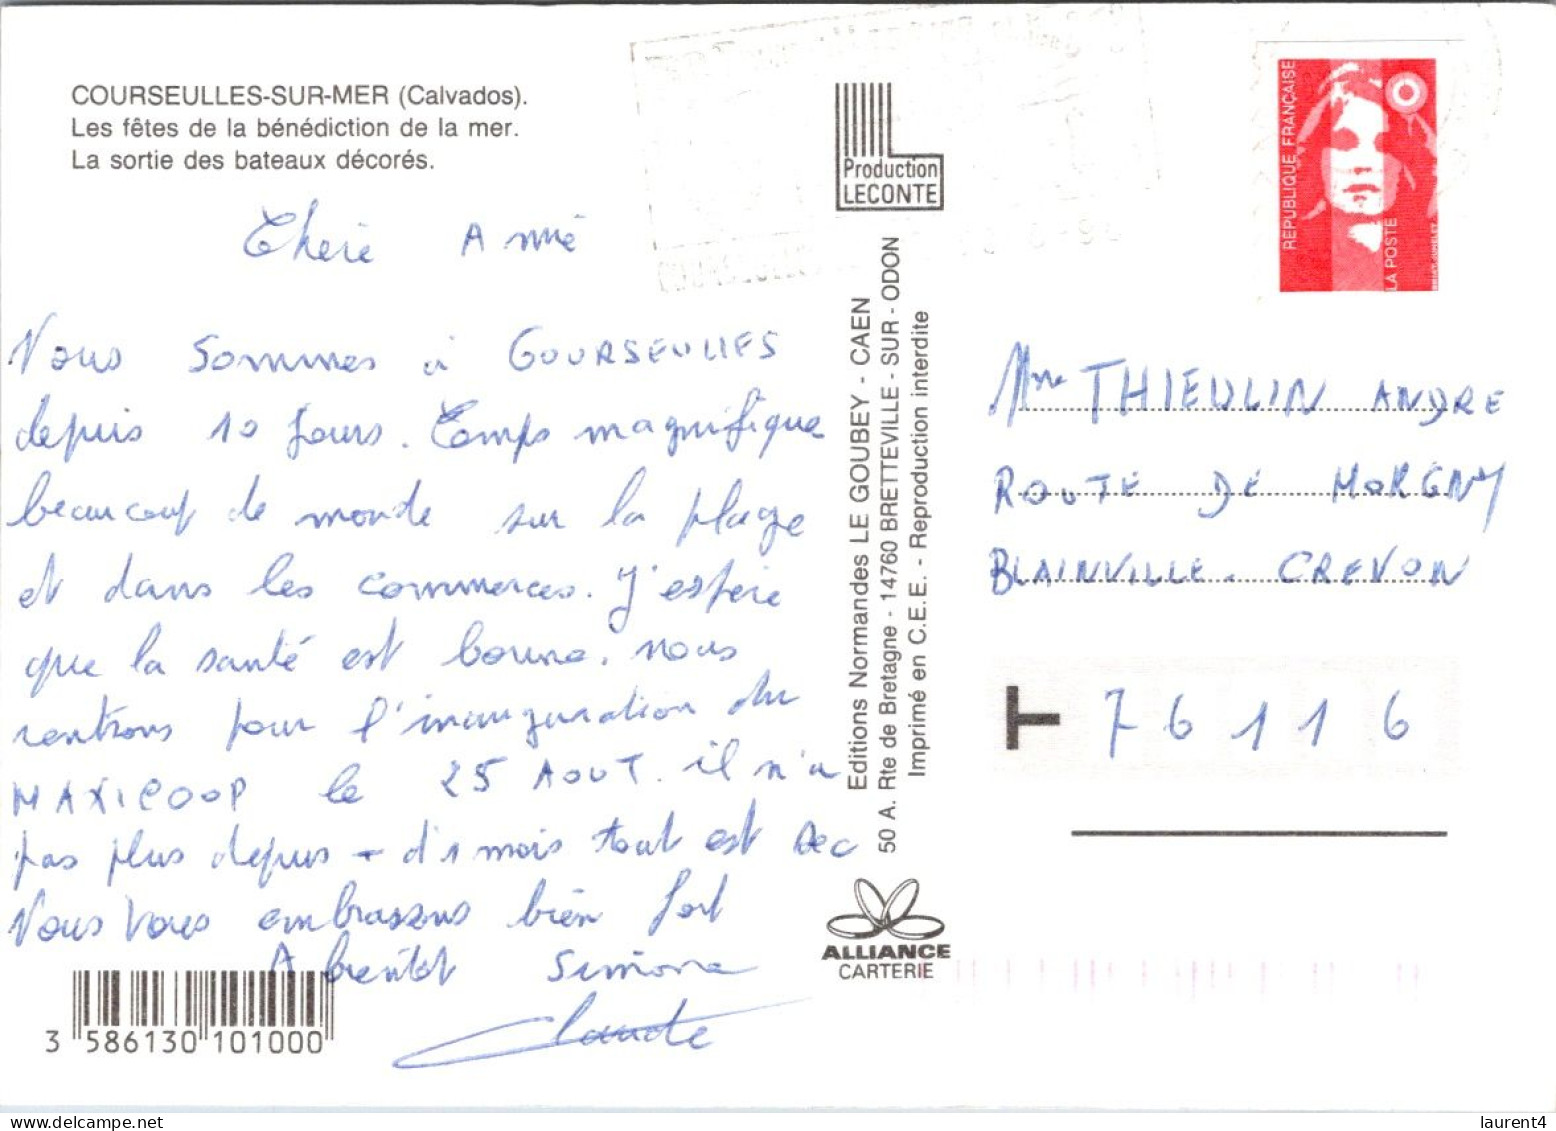 COURSEULLES-SUR-MER (Calvados).
Les fêtes de la bénédiction de la mer.
La sortie des bateaux décorés.
Chère Amie
Nous sommes à COURSEULLES
depuis 10 Jours. Temps magnifique
beaucoup de monde sur la plage
et dans les commerces. J'espère
que la santé est bonne. nous
rentrons pour l'inauguration du
MAXICOOP le 25 AOUT. il n'a
pas plus depuis + d'1 mois tout est sec
Nous Vous embrassons bien fort
A bientôt Simone
Claude
3 586130 101000
Production
LECONTE
Editions Normandes LE GOUBEY - CAEN
50 A. Rte de Bretagne - 14760 BRETTEVILLE - SUR - ODON
Imprimé en C.E.E. - Reproduction interdite
ALLIANCE
CARTERIE
REPUBLIQUE FRANÇAISE
LA POSTE
Mme THIEULIN ANDRE
ROUTE DE MORGNY
BLAINVILLE. CREVON
76116
laurent4